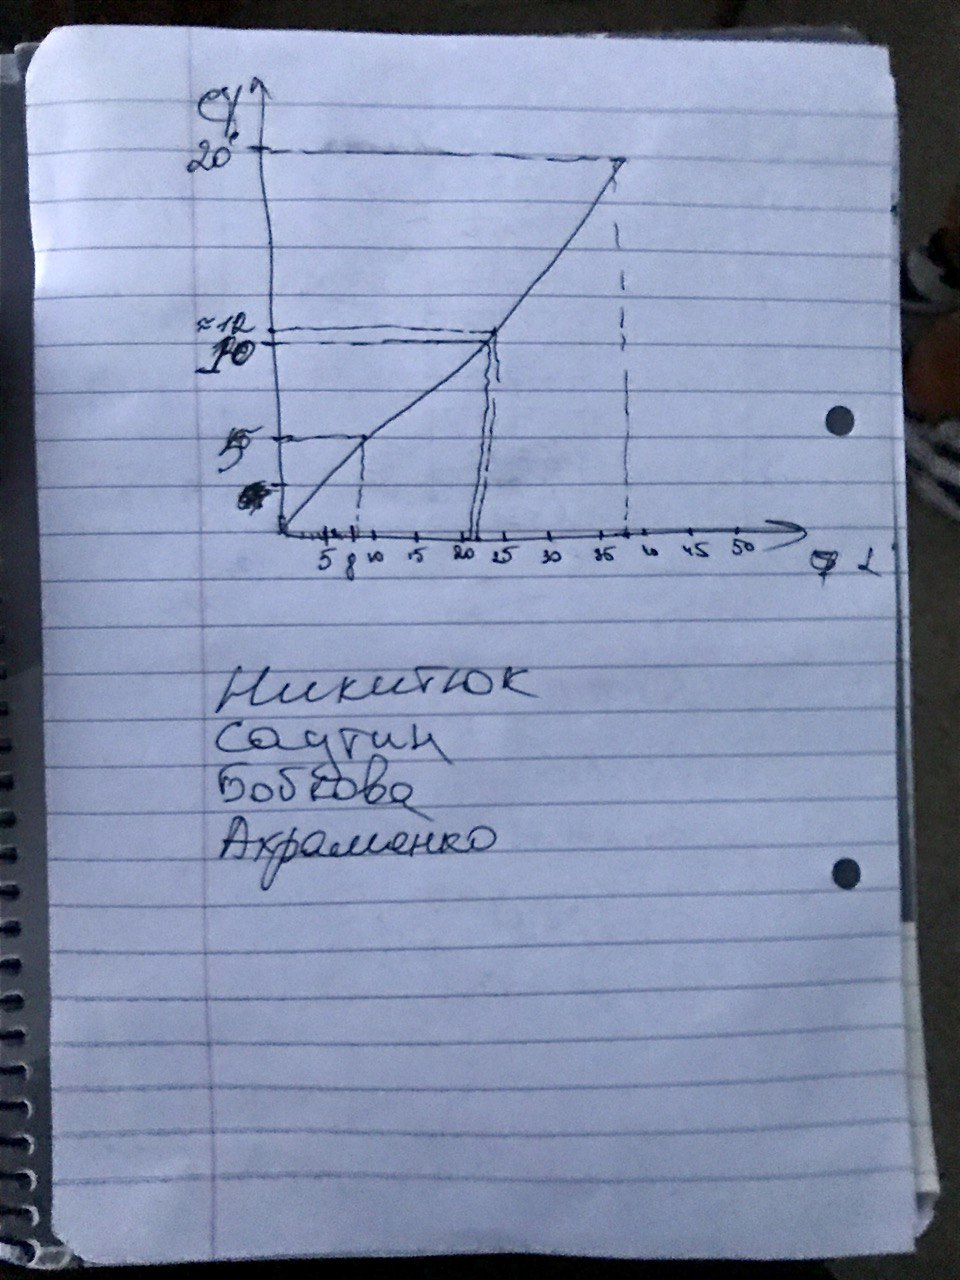 20
≈12
10
5
5 8 10 15 20 25 30 35 40 45 50
L
Никитюк
Саутин
Бобкова
Ахраменко